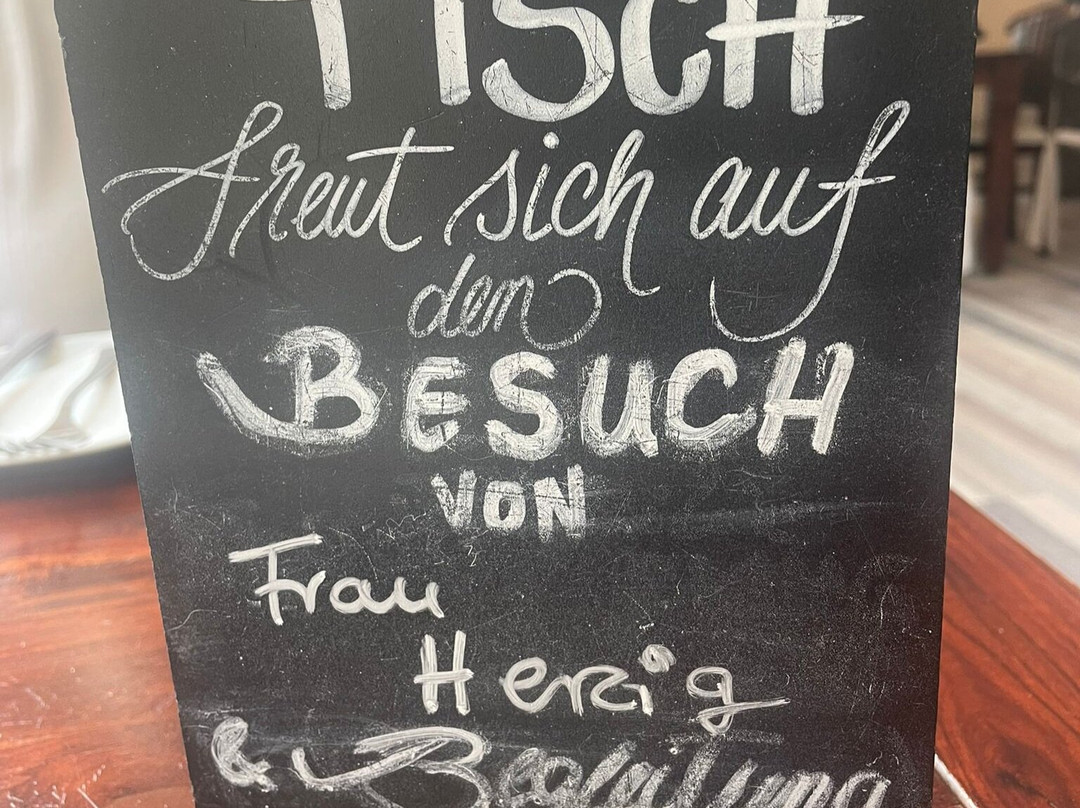 TISCH
freut sich auf
den
BESUCH
VON
Frau
Herzig
& Begleitung